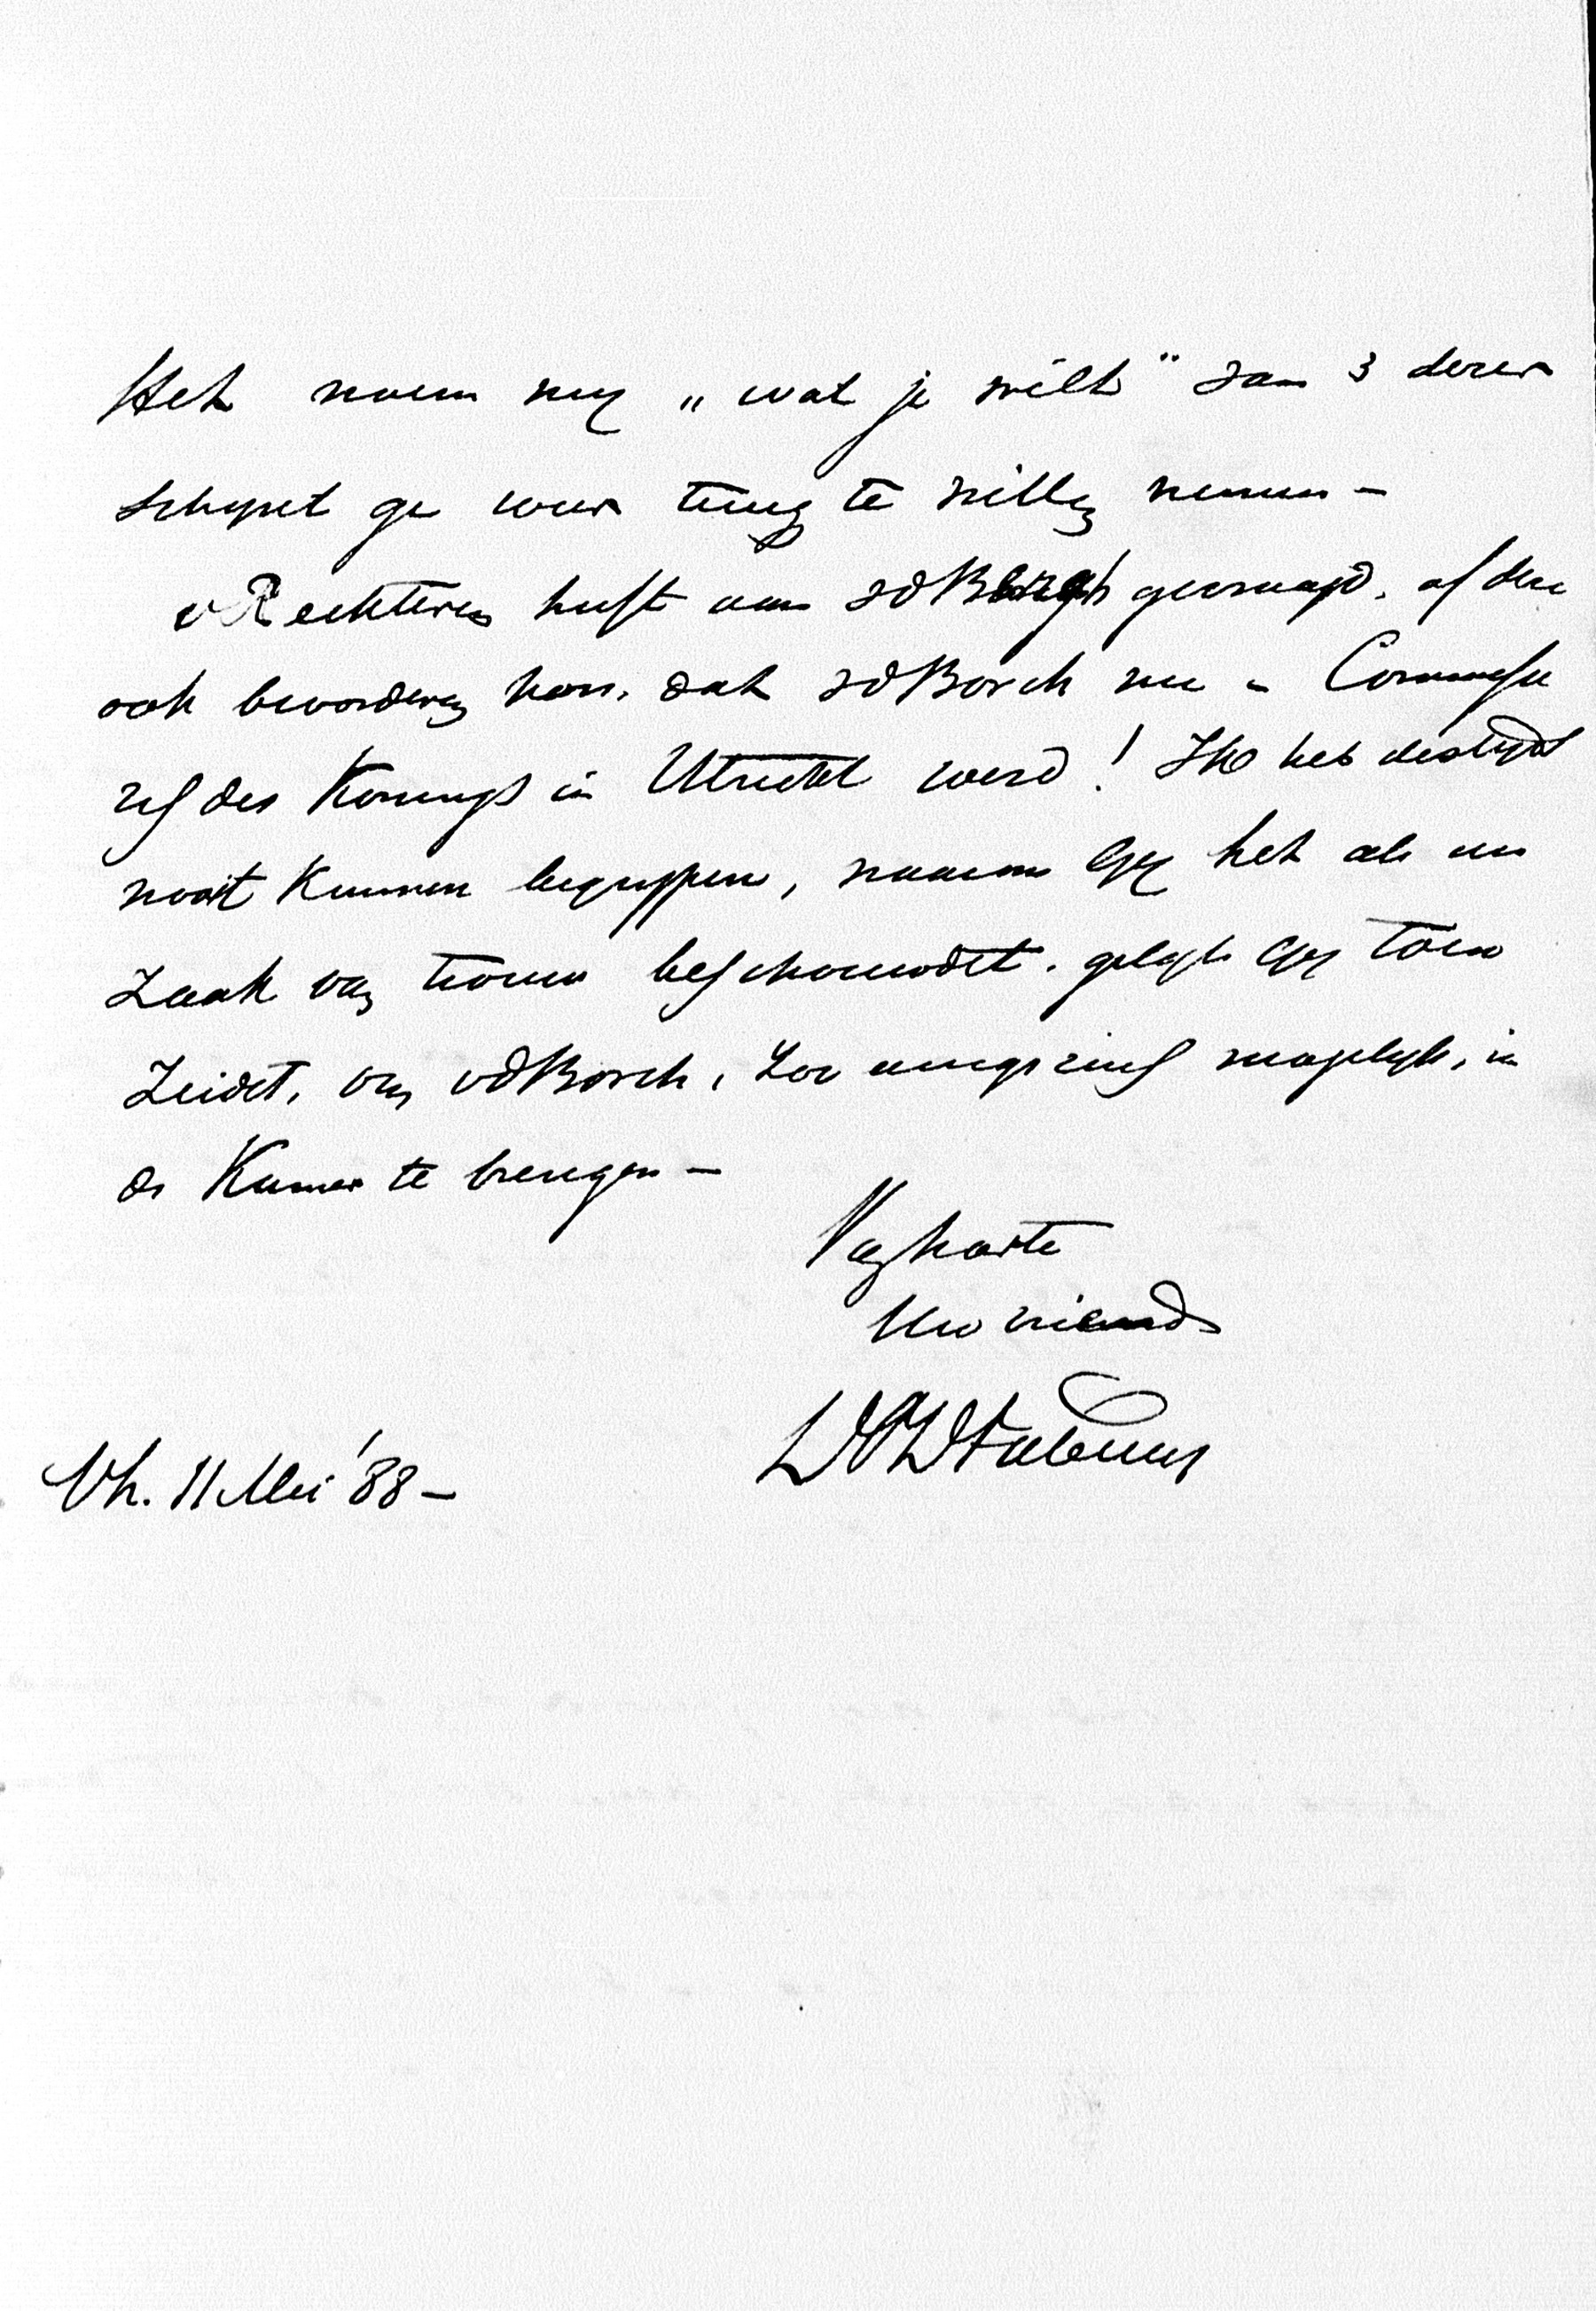 Het noem my „wat je wilt" van 3 dezer
schynt ge weer terug te willen nemen –
v Rechteren heeft aan vdBergh gevraagd, of deze
ook bevorderen kon, dat vdBorch nu – Commissa
ris des Konings in Utrecht werd! Ik heb destyds
nooit kunnen begrypen, waarom Gy het als een
Zaak van trouw beschouwdet, gelyk Gy toen
Zeidet, om vdBorch, Zoo eenigszins mogelyk, in
de Kamer te brengen –
Van harte
Uw vriend
Vh. 11 Mei '88 –